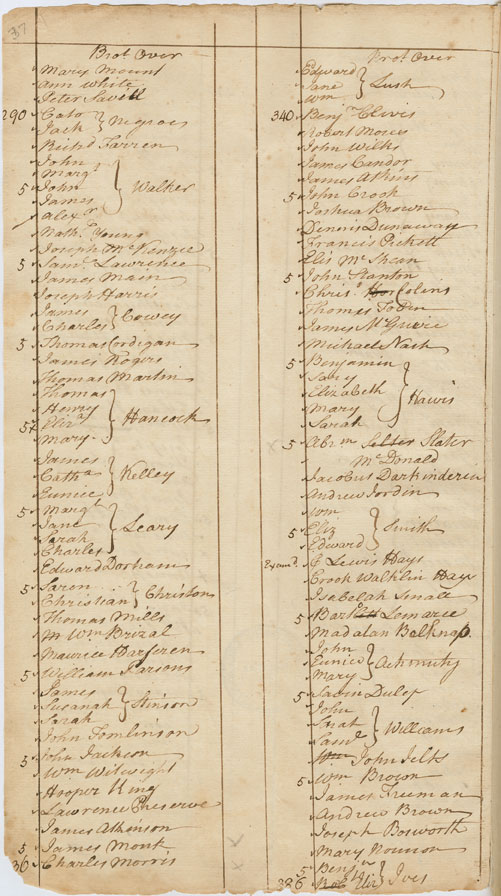 37
Brot Over
Mary Mount
Ann White
Peter Savell
290 Cato
Jack } Negroes
Farren
John
Margt
5 John } Walker
James
Alexr
Nathl Young
Joseph McKenzee
5 Saml Lawrence
James Main
Joseph Harris
James
Charles } Cowey
5 Thomas Cordigan
James Rogers
Thomas Martin
Thomas
Henry
5 Eliza } Hancock
Mary
James
Catha } Kelley
Eunice
5 Margt
Jane
Sarah } Leary
Charles
Edward Dorham
5 Saron
Christian } Christon
Thomas Mills
Wm
Maurice
5 William Parsons
James
Susanah } Stinson
Sarah
John Tomlinson
5 John Jackson
Wm Wilwright
Hooper King
Lawrence Preserve
James Atkenson
5 James Mont
36 Charles Morris
Brot Over
Edward
Jane } Lush
Wm
340 Benjn Clews
Robert Moses
John Wilks
James Candor
James Atkins
5 John Crook
Joshua Brown
Dennis Dunaway
Francis Pickett
Elis McShean
5 John Stanton
Chrisr Colins
Thomas Tobin
James McGuire
Michael Nash
5 Benjamin
Sary
Elizabeth } Hawis
Mary
Sarah
5 Abrm Selter Slater
McDonald
Jacobus Darkinderin
Andrew Jordin
Wm
5 Eliz } Smith
Edward
Examd C Lewis Hays
Crook Walklin Hays
Isabelah Small
5 Lemaree
Madalan Belknap
John
Eunice } Achmuty
Mary
5 Sabin Dulop
John
Sarat } Williams
Saml
John Jelts
5 Wm Brown
James Freeman
Andrew Brown
Joseph Bosworth
Mary
5 Benjn
386 Eliz } Ives